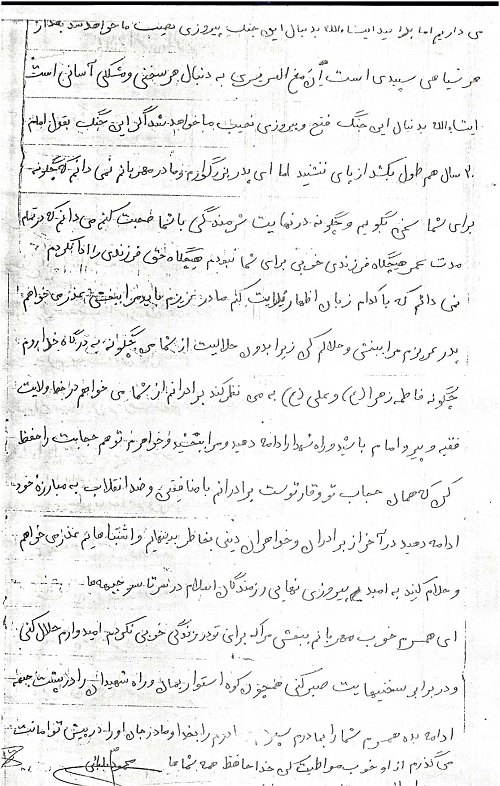 می داریم اما بدانید انشاءالله بدنبال این جنگ پیروزی نصیب ما خواهد شد بعد از
هر سیاهی سپیدی است ان مع العسر یسری به دنبال هر سختی و مشکلی آسانی است
انشاءالله بدنبال این جنگ فتح و پیروزی نصیب ما خواهد شد اگر این جنگ بقول امام
۲۰ سال هم طول بکشد از پای ننشینید اما ای پدر بزرگوارم و مادر مهربانم نمی دانم که چگونه
برای شما سخن بگویم و چگونه در نهایت شرمندگی با شما صحبت کنم می دانم که در تمام
مدت عمر هیچگاه فرزندی خوبی برای شما نبودم هیچگاه حق فرزندی را ادا نکردم
نمی دانم که با کدام زبان اظهار کنم مادر عزیزم باید مرا ببخشی عذر می خواهم
پدر عزیزم مرا ببخش و حلالم کن زیرا بدون حلالیت از شما من چگونه به درگاه خدا بروم
چگونه فاطمه زهرا (س) و علی (ع) به من نظر کند برادرانم از شما می خواهم در خط ولایت
فقیه و پیرو امام باشید و راه شهدا را ادامه دهید و مرا ببخشید و خواهرم تو هم حجابت را حفظ
کن که همان حجاب تو وقار توست برادرانم با منافقین و ضد انقلاب به مبارزه خود
ادامه دهید در آخر از برادران و خواهران دینی بخاطر بدیهایم و اشتباهایم عذر می خواهم
و حلالم کنید به امید پیروزی نهایی رزمندگان اسلام در سرتاسر جبهه ها
ای همسرم خوب مهربانم ببخش مرا که برای تو در زندگی خوبی نکردم امیدوارم حلال کنی
و در برابر سختیها صبر کنی همچون کوه استوار بمان و راه شهیدان را در پشت جبهه
ادامه بده همسرم شما را بمادرم را بخدا و مادر جان او را در پیش تو امانت
می گذارم از او خوب مواظبت کن خداحافظ همه شما ها محمود